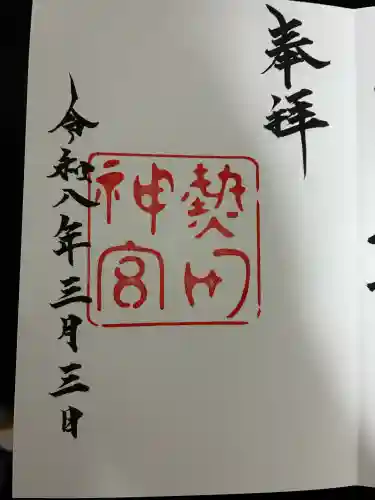 奉拝
熱田
神宮
令和八年三月三日